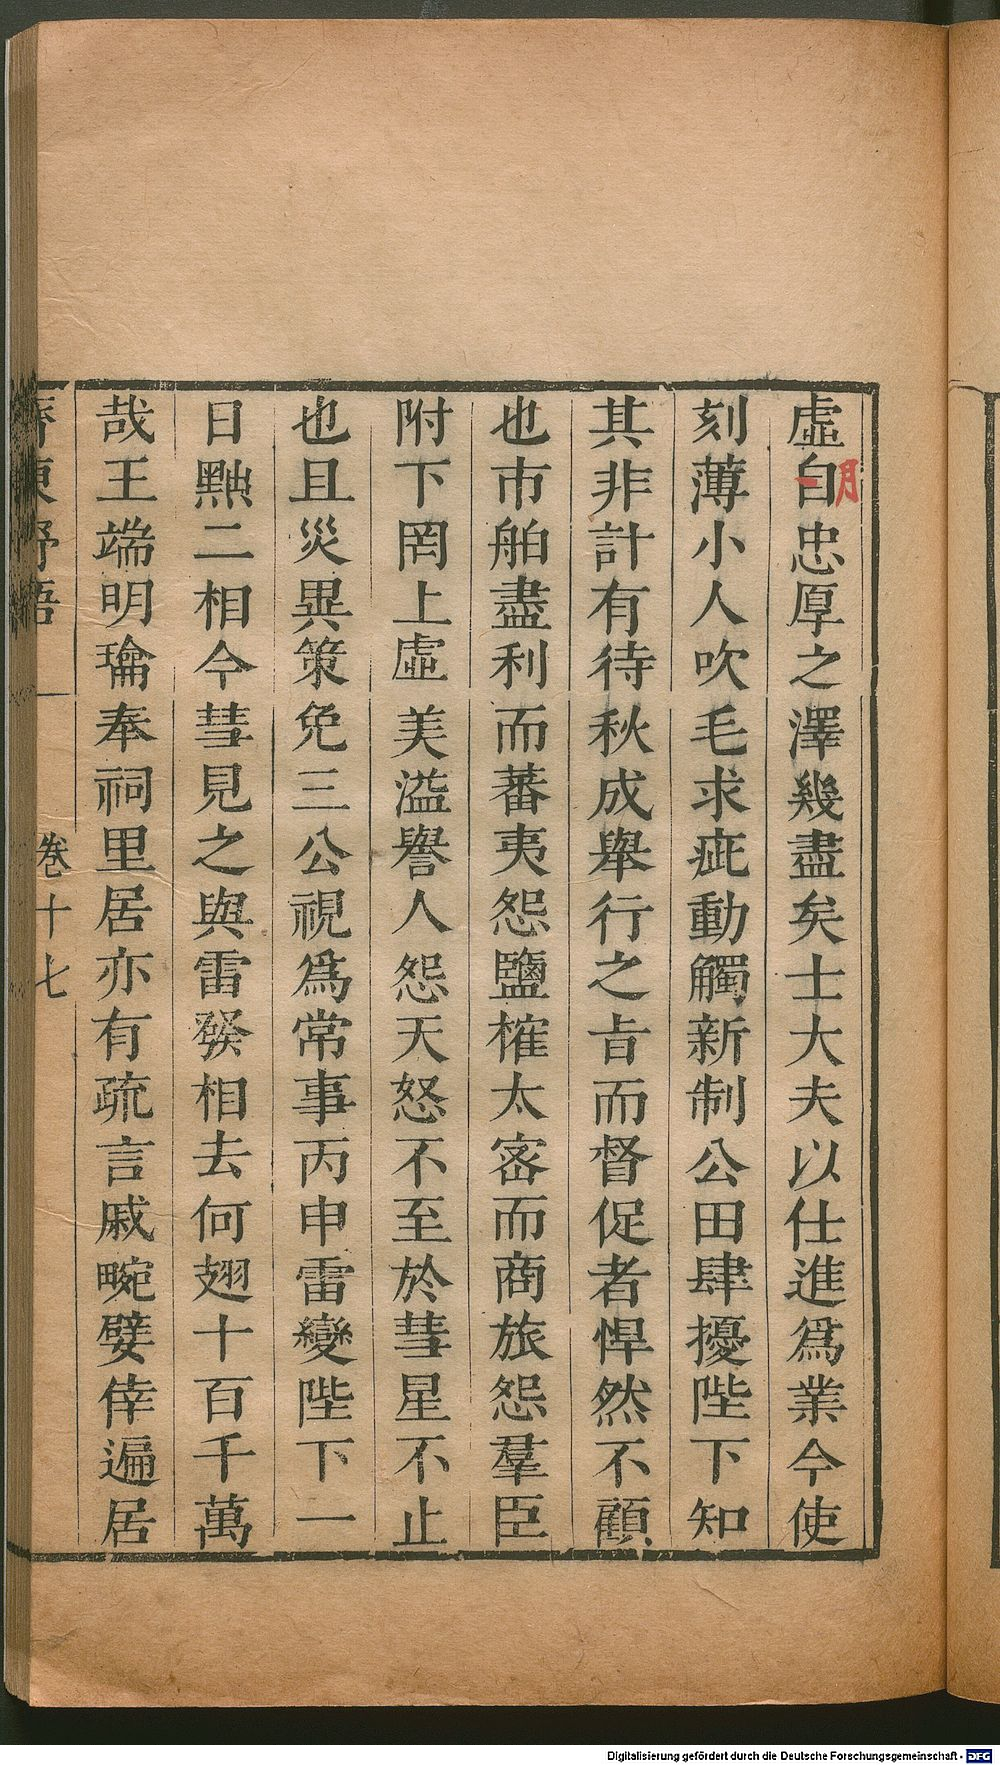 虛自忠厚之澤幾盡矣士大夫以仕進爲業今使
月
刻薄小人吹毛求疵動觸新制公田肆擾陛下知
其非計有待秋成舉行之旨而督促者悍然不顧
也市舶盡利而蕃夷怨鹽榷太密而商旅怨羣臣
附下罔上虛美溢譽人怨天怒不至於彗星不止
也且災異策免三公視爲常事丙申雷變陛下一
日黜二相今彗見之與雷發相去何翅十百千萬
哉王端明瀹奉祠里居亦有疏言戚畹嬖倖遍居
齊東野語 卷十七
Digitalisierung gefördert durch die Deutsche Forschungsgemeinschaft - DFG